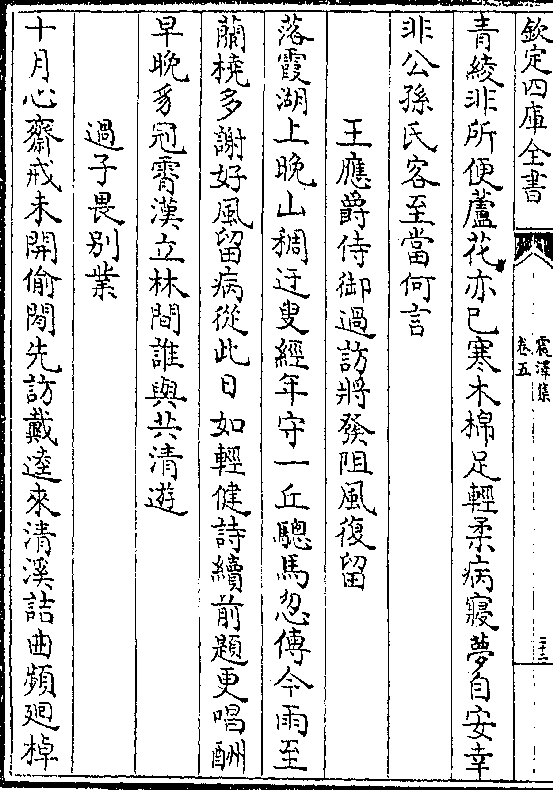 欽定四庫全書
震澤集
卷五
二十二
青綾非所便蘆花亦已寒木棉足輕柔病寢夢自安幸
非公孫氏客至當何言
王應爵侍御過訪將發阻風復留
落霞湖上晚山稠迂叟經年守一丘驄馬忽傳今雨至
蘭橈多謝好風留病從此日如輕健詩續前題更唱酬
早晚豸冠霄漢立林間誰與共清遊
過子畏別業
十月心齋戒未開偷閒先訪戴逵來清溪詰曲頻廻棹